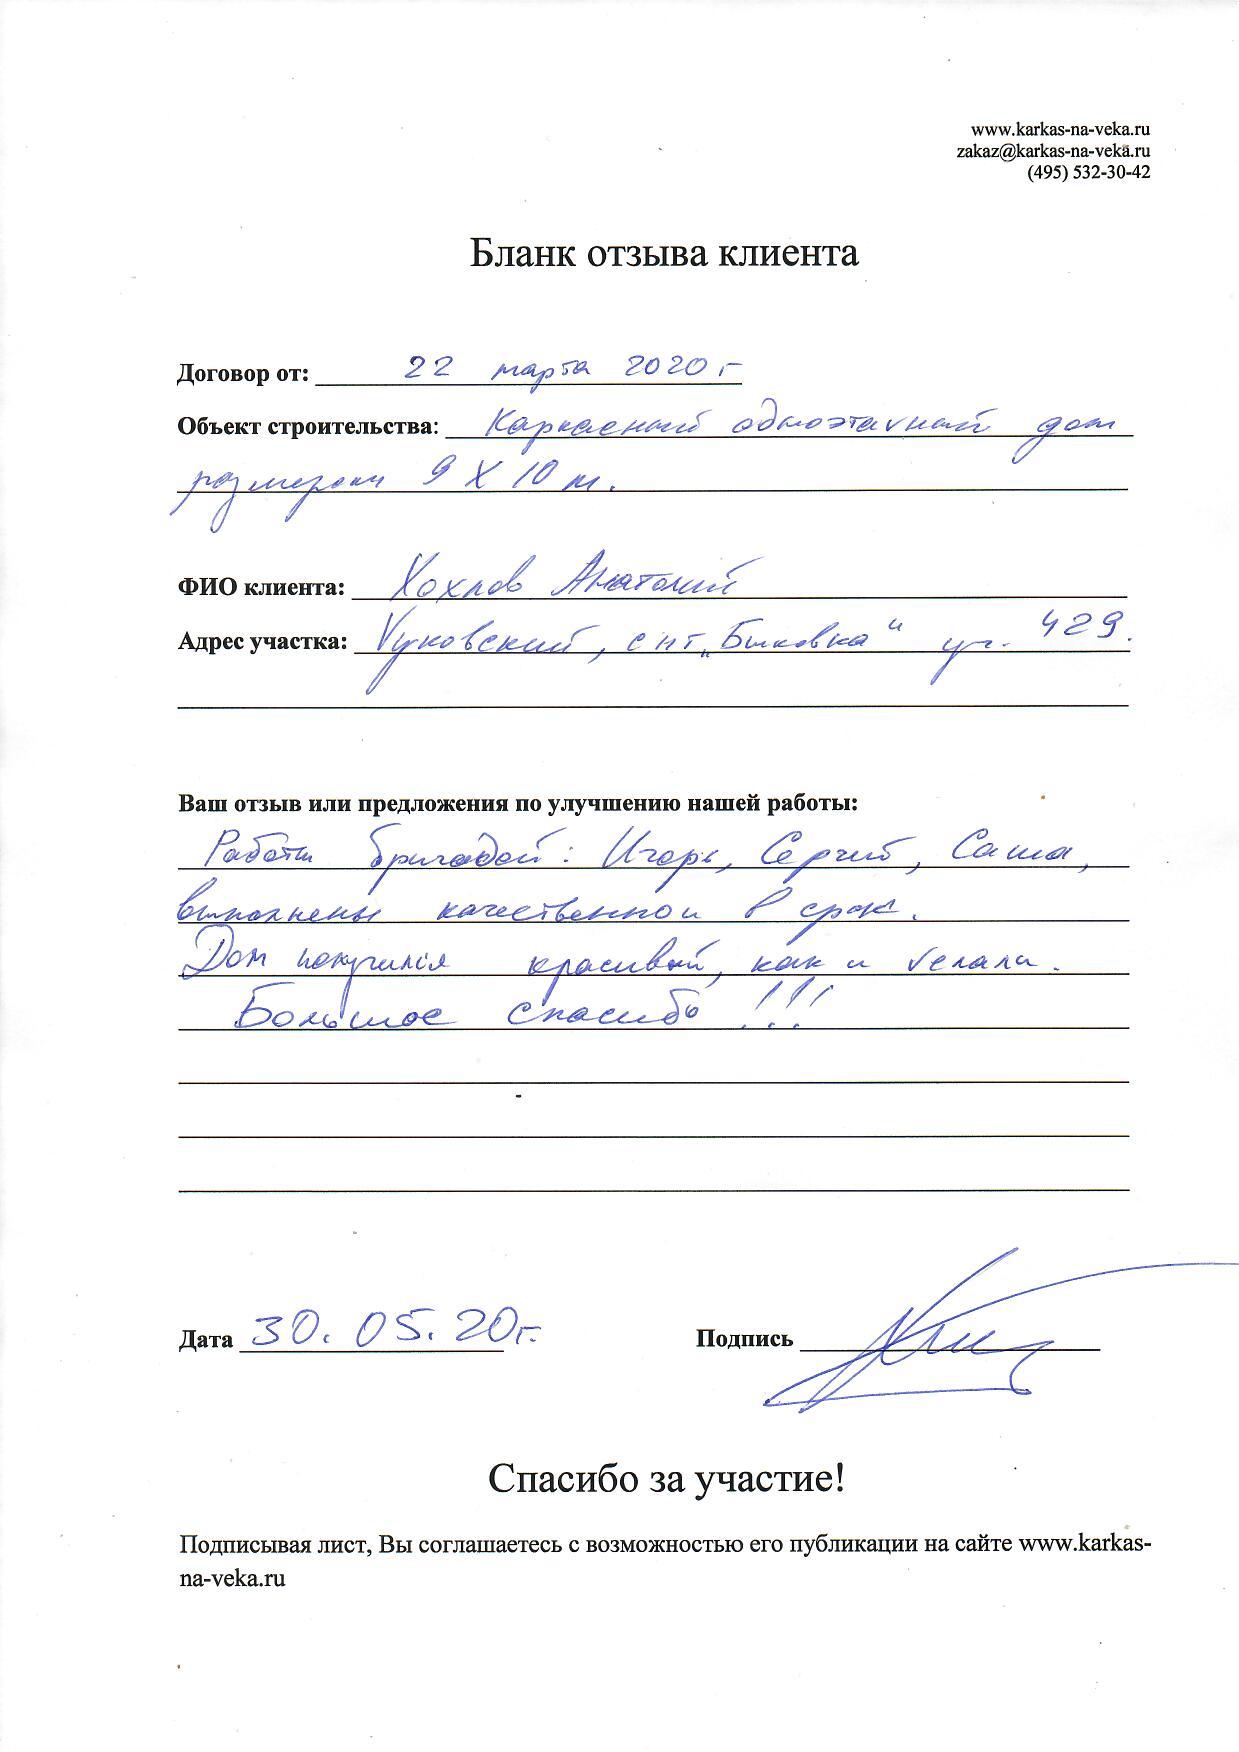 www.karkas-na-veka.ru
zakaz@karkas-na-veka.ru
(495) 532-30-42
Бланк отзыва клиента
Договор от: 22 марта 2020 г
Объект строительства: Каркасный одноэтажный дом
размером 9 X 10 м.
ФИО клиента: Хохлов Анатолий
Адрес участка: снт „Быковка“ уч. 429.
Ваш отзыв или предложения по улучшению нашей работы:
Работы бригадой: Игорь, Сергей, Саша,
выполнены качественно и в срок.
Дом получился красивый, как и желали.
Большое спасибо !!!
Дата 30.05.20г. Подпись
Спасибо за участие!
Подписывая лист, Вы соглашаетесь с возможностью его публикации на сайте www.karkas-
na-veka.ru